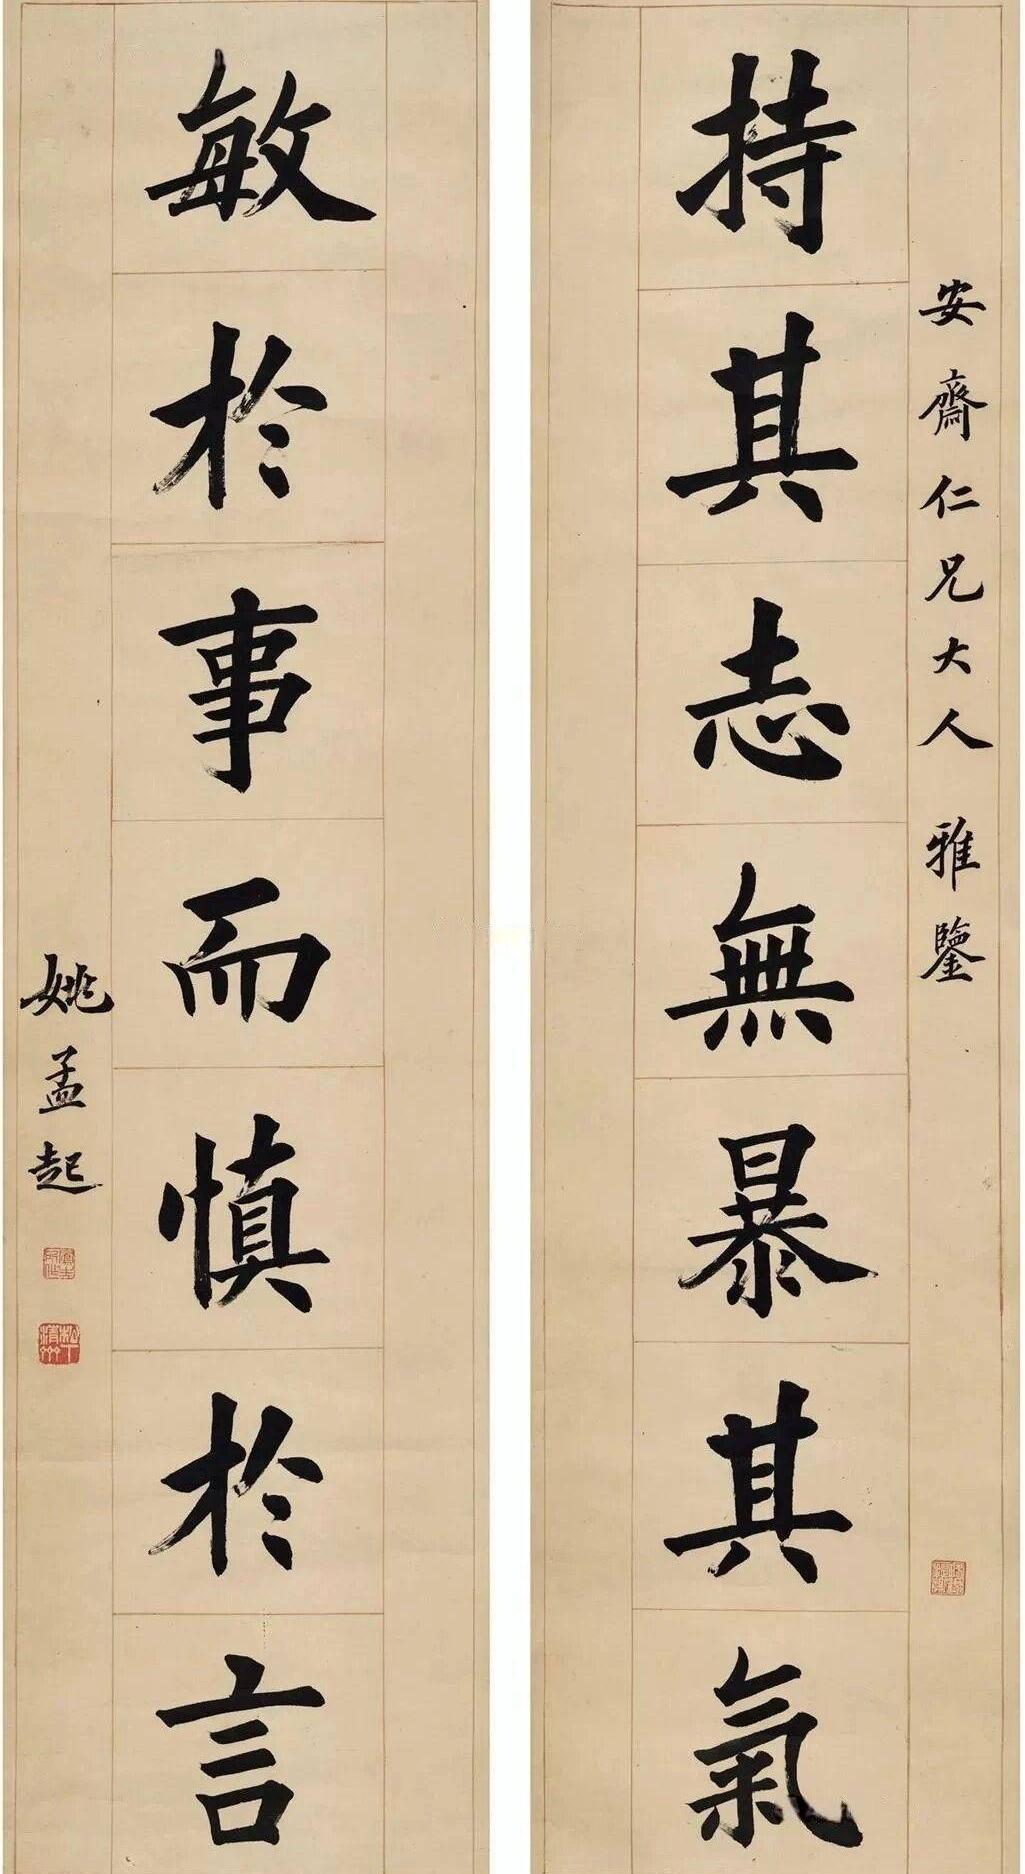 安齋仁兄大人雅鑒
持其志無暴其氣
敏於事而慎於言
姚孟起